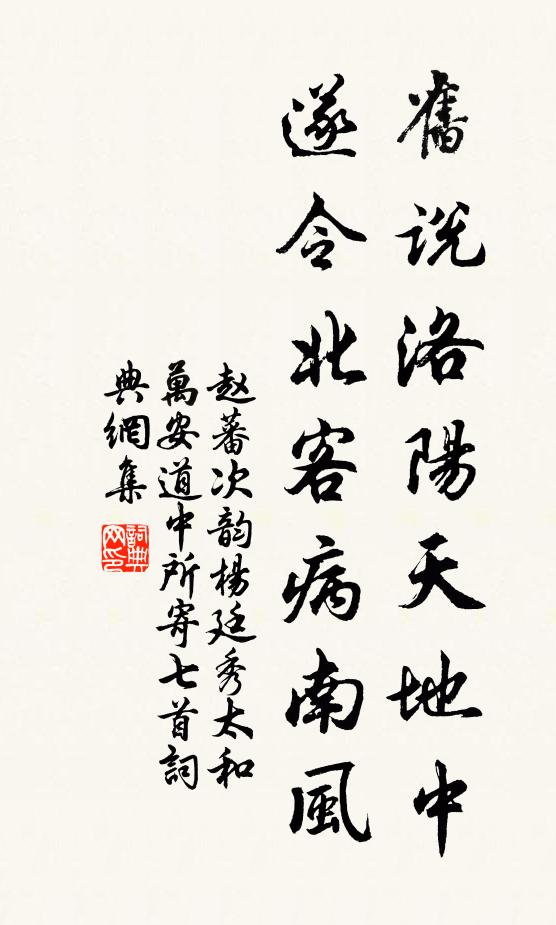 舊説洛陽天地中
遂令北客病南風
赵蕃次韵楊廷秀太和
萬安道中所寄七首詞
典網集
詞典
网印